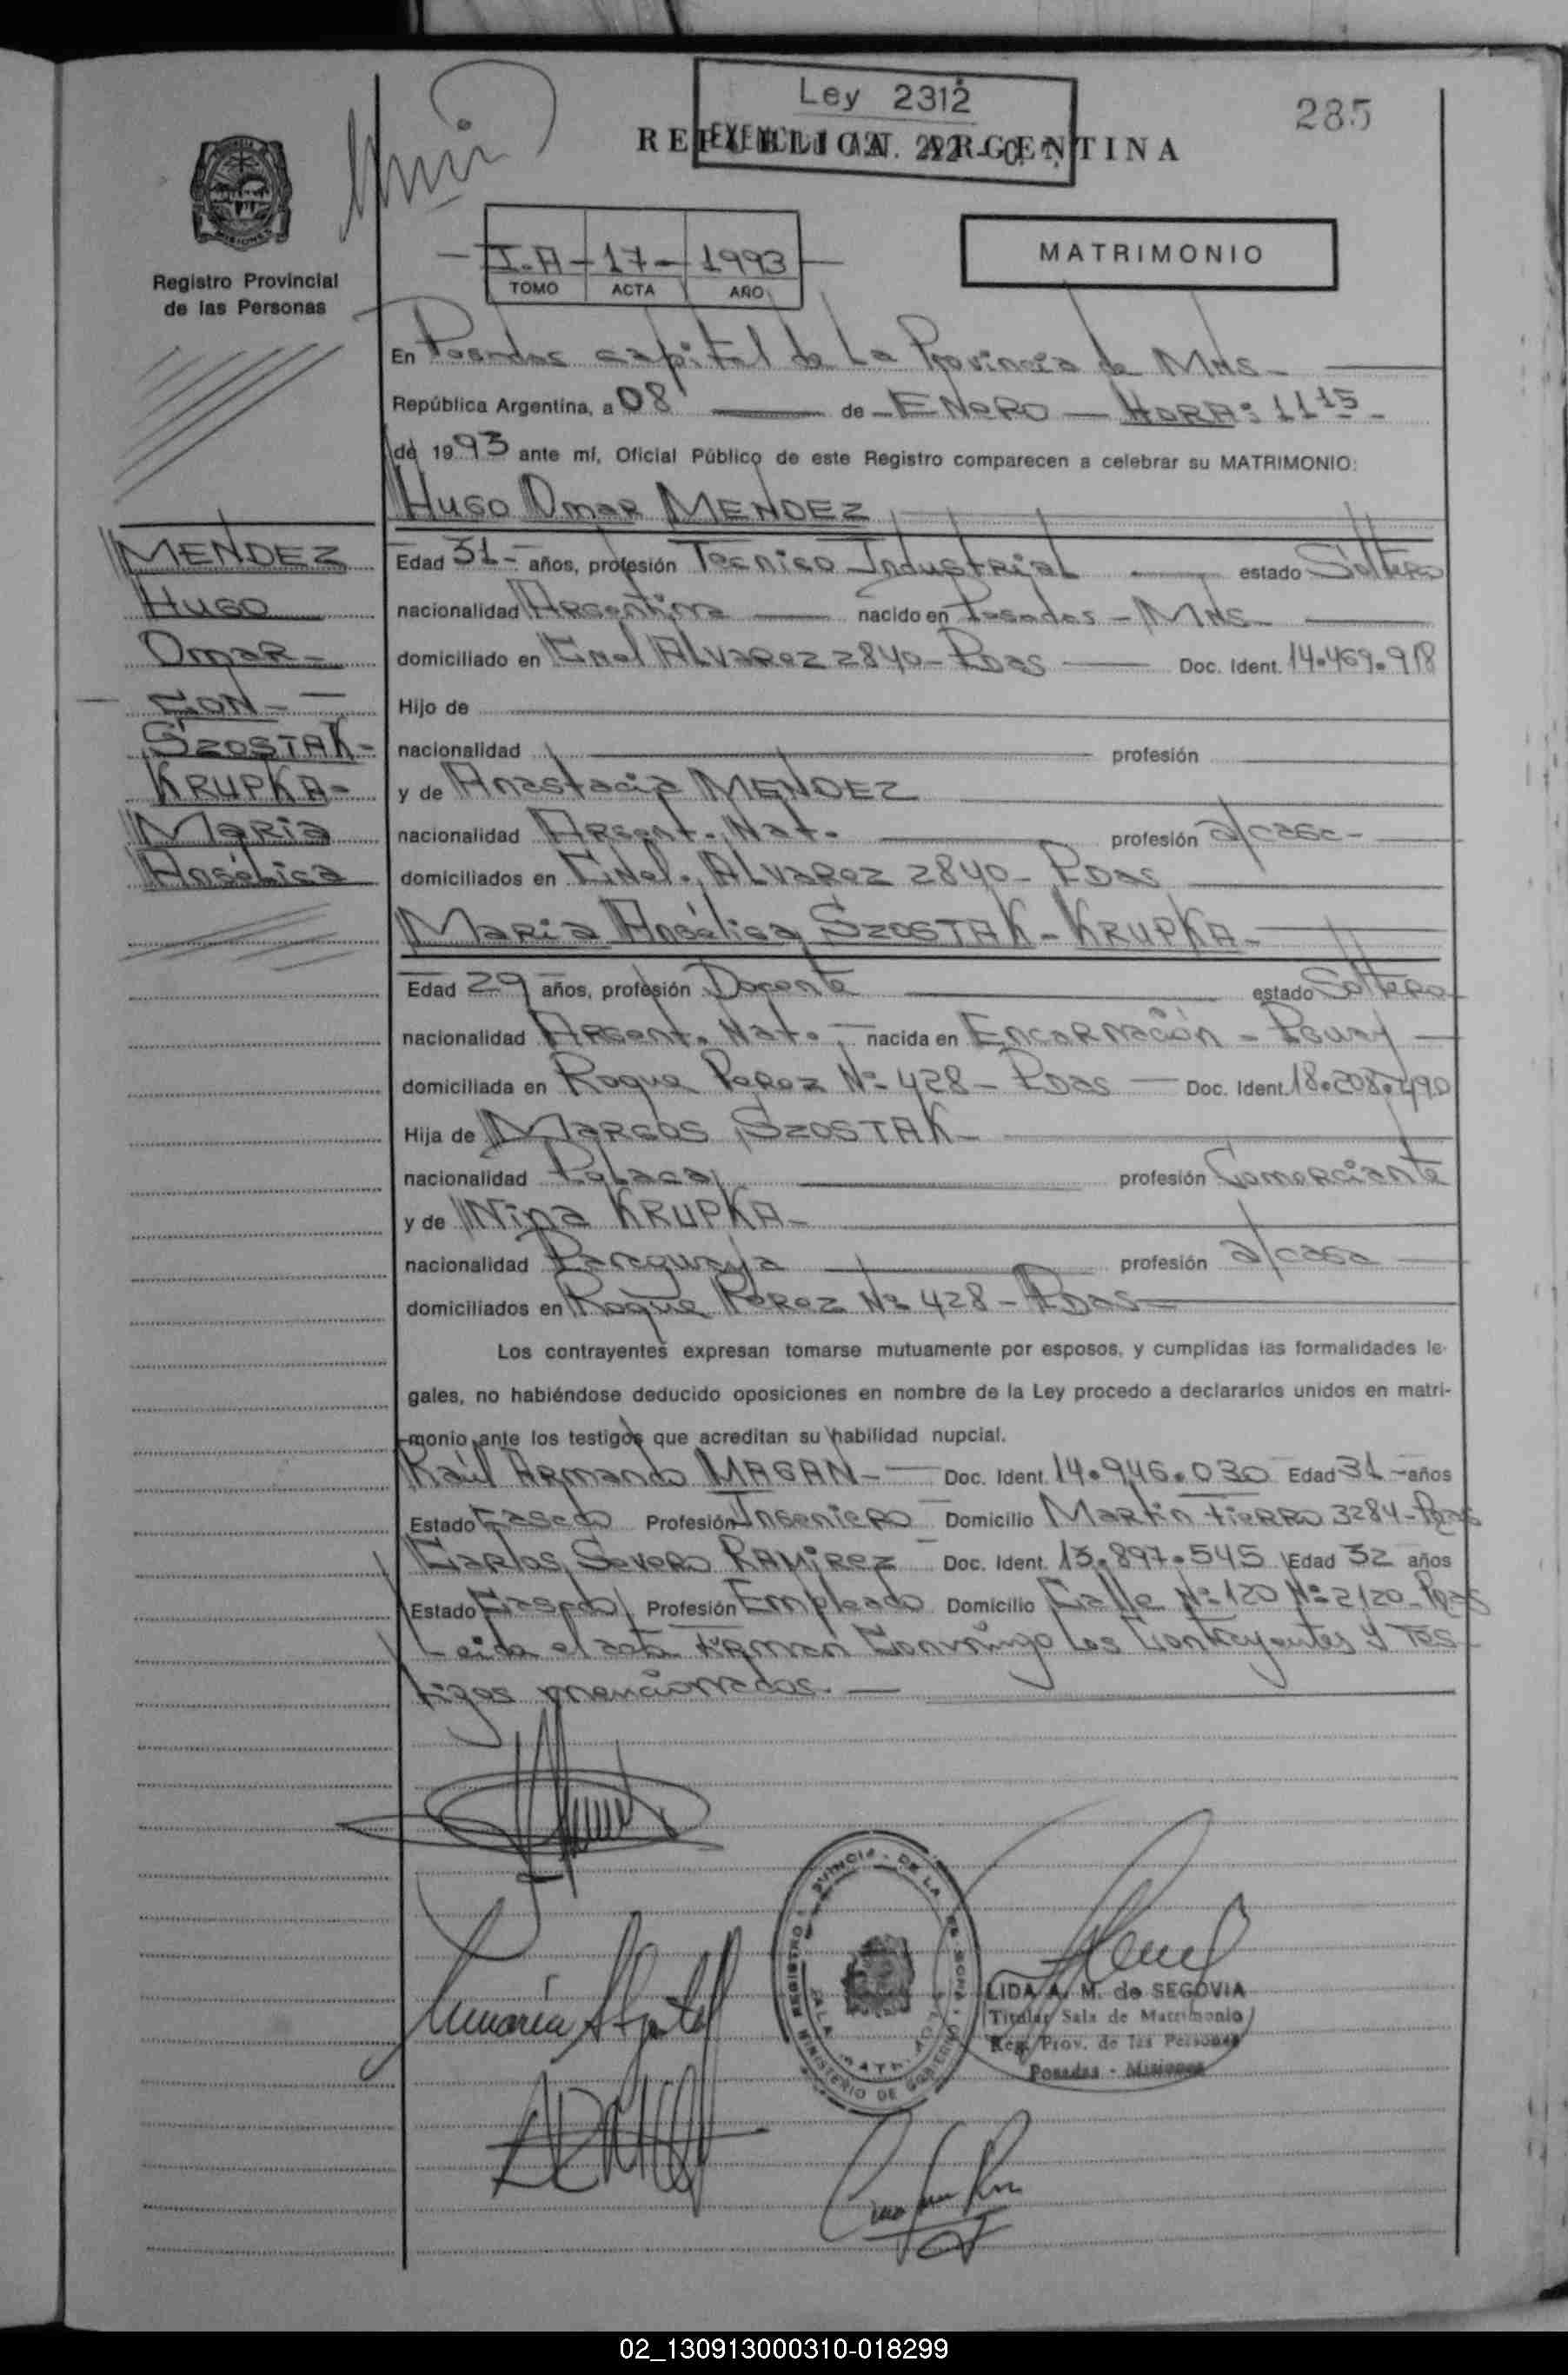 Ley 2312
285
EXENCION ART. 292
REPUBLICA ARGENTINA
MISIONES
Registro Provincial
de las Personas
I.A - 17 - 1993
TOMO ACTA AÑO
MATRIMONIO
En Posadas capital de La Provincia de Mnes -
República Argentina, a 08 de - ENERO - HORA: 11 15 -
de 1993 ante mí, Oficial Público de este Registro comparecen a celebrar su MATRIMONIO:
Hugo Omar MENDEZ
MENDEZ
Hugo
Omar -
CON -
SZOSTAK -
KRUPKA -
Maria
Angélica
Edad 31 - años, profesión Tecnico Industrial estado Soltero
nacionalidad Argentina nacido en Posadas - Mnes -
domiciliado en Cnel Alvarez 2840 - Pdas Doc. Ident. 14.469.918
Hijo de
nacionalidad profesión
y de Anastacia MENDEZ
nacionalidad Argent. Nat. profesión a/casa -
domiciliados en Cnel. Alvarez 2840 - Pdas
Maria Angélica SZOSTAK - KRUPKA -
Edad 29 años, profesión Docente estado Soltera
nacionalidad Argent. Nat. nacida en Encarnación - Pguay
domiciliada en Roque Perez Nº 428 - Pdas Doc. Ident. 18.208.490
Hija de Marcos SZOSTAK -
nacionalidad Polaca profesión Comerciante
y de Nina KRUPKA -
nacionalidad Paraguaya profesión a/casa
domiciliados en Roque Perez Nº 428 - Pdas
Los contrayentes expresan tomarse mutuamente por esposos, y cumplidas las formalidades le-
gales, no habiéndose deducido oposiciones en nombre de la Ley procedo a declararlos unidos en matri-
monio ante los testigos que acreditan su habilidad nupcial.
Raúl Armando MAGAN - Doc. Ident. 14.946.030 Edad 31 - años
Estado Casado Profesión Ingeniero Domicilio Martin Fierro 3284 - Pdas
Carlos Severo RAMIREZ Doc. Ident. 13.897.545 Edad 32 años
Estado Casado Profesión Empleado Domicilio Calle Nº 120 Nº 2120 - Pdas
Leida el acta firman Conmigo Los Contrayentes y Tes-
tigos mencionados. -
LIDA A. M. de SEGOVIA
Titular Sala de Matrimonio
Reg. Prov. de las Personas
Posadas - Misiones
MINISTERIO DE GOBIERNO
02_130913000310-018299